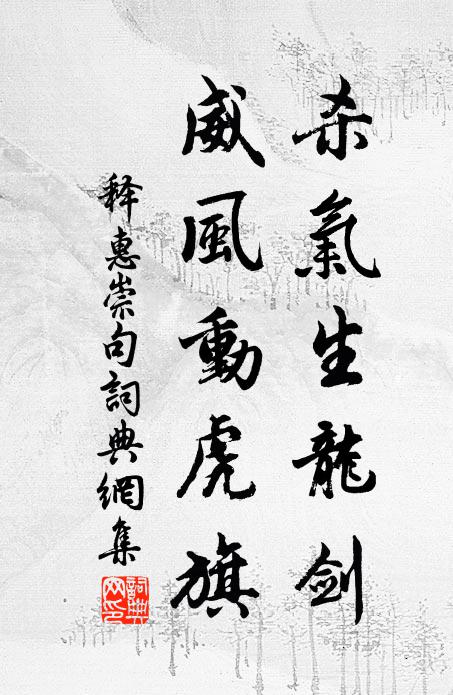 杀氣生龍劍
威風動虎旗
释惠崇句詞典網集
詞典網印